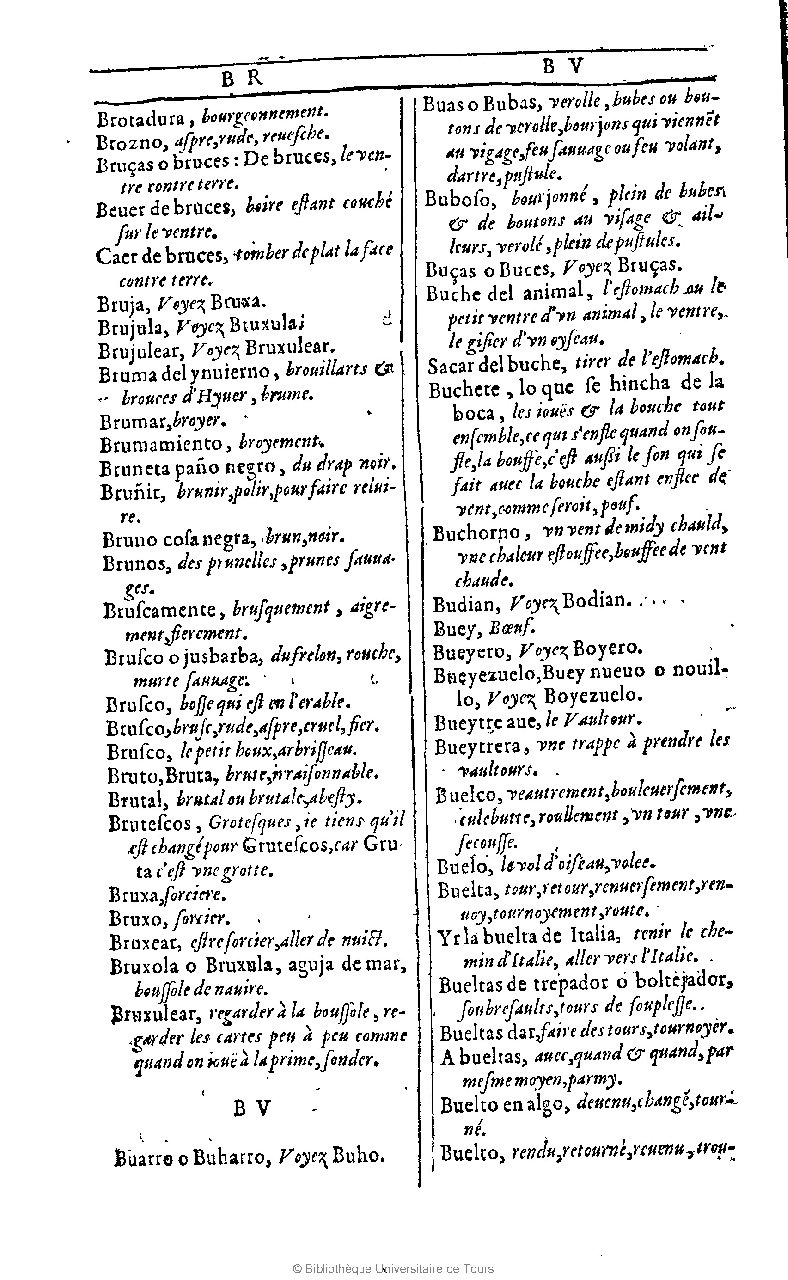 B R
Brotadura, bourgeonnement.
Brozno, aſpre, rude, reueſche.
Bruças o bruces: De bruces, le ven-
tre contre terre.
Beuer de bruces, boire eſtant couché
ſur le ventre.
Caer de bruces, tomber de plat la face
contre terre.
Bruja, Voyez Bruxa.
Brujula, Voyez Bruxula;
Brujulear, Voyez Bruxulear.
Bruma del ynuierno, brouillarts &
brouces d'Hyuer, brume.
Brumar, broyer.
Brumamiento, broyement.
Bruneta paño negro, du drap noir.
Bruñir, brunir, polir, pour faire relui-
re.
Bruno coſa negra, brun, noir.
Brunos, des prunelles, prunes ſauua-
ges.
Bruſcamente, bruſquement, aigre-
ment, fierement.
Bruſco o jusbarba, du frelon, rouche,
murte ſauuage.
Bruſco, boſſe qui eſt en l'erable.
Bruſco, bruſc, rude, aſpre, cruel, fier.
Bruſco, le petit houx, arbriſſeau.
Bruto, Bruta, brute, irraiſonnable.
Brutal, brutal ou brutale, abeſty.
Bruteſcos, Groteſques, ie tiens qu'il
eſt changé pour Gruteſcos, car Gru
ta c'eſt vne grotte.
Bruxa, ſorciere.
Bruxo, ſorcier.
Bruxear, eſtre ſorcier, aller de nuict.
Bruxola o Bruxula, aguja de mar,
bouſſole de nauire.
Bruxulear, regarder à la bouſſole, re-
garder les cartes peu à peu comme
quand on iouë à la prime, ſonder.
B V
Buarro o Buharro, Voyez Buho.
B V
Buas o Bubas, verolle, bubes ou bou-
tons de verolle, bourjons qui viennẽt
au viſage, feu ſauuage ou feu volant,
dartre, puſtule.
Buboſo, bourjonné, plein de bubes
& de boutons au viſage & ail-
leurs, verolé, plein de puſtules.
Buças o Buces, Voyez Bruças.
Buche del animal, l'eſtomach ou le
petit ventre d'vn animal, le ventre,
le giſier d'vn oyſeau.
Sacar del buche, tirer de l'eſtomach.
Buchete, lo que ſe hincha de la
boca, les iouës & la bouche tout
enſemble, ce qui s'enfle quand on ſou-
fle, la bouffe, c'eſt auſſi le ſon qui ſe
fait auec la bouche eſtant enflee de
vent, comme ſeroit, pouf.
Buchorno, vn vent de midy chauld,
vne chaleur eſtouffee, bouffee de vent
chaude.
Budian, Voyez Bodian.
Buey, Bœuf.
Bueyero, Voyez Boyero.
Bueyezuelo, Buey nueuo o nouil-
lo, Voyez Boyezuelo.
Bueytre aue, le Vaultour.
Bueytrera, vne trappe à prendre les
vaultours.
Buelco, veautrement, bouleuerſement,
culebutte, roullement, vn tour, vne
ſecouſſe.
Buelo, le vol d'oiſeau, volee.
Buelta, tour, retour, renuerſement, ren-
uoy, tournoyement, route.
Yr la buelta de Italia, tenir le che-
min d'Italie, aller vers l'Italie.
Bueltas de trepador o boltejador,
ſoubreſaults, tours de ſoupleſſe.
Bueltas dar, faire des tours, tournoyer.
A bueltas, auec, quand & quand, par
meſme moyen, parmy.
Buelto en algo, deuenu, changé, tour-
né.
Buelto, rendu, retourné, reuenu, trou-
© Bibliothèque Universitaire de Tours